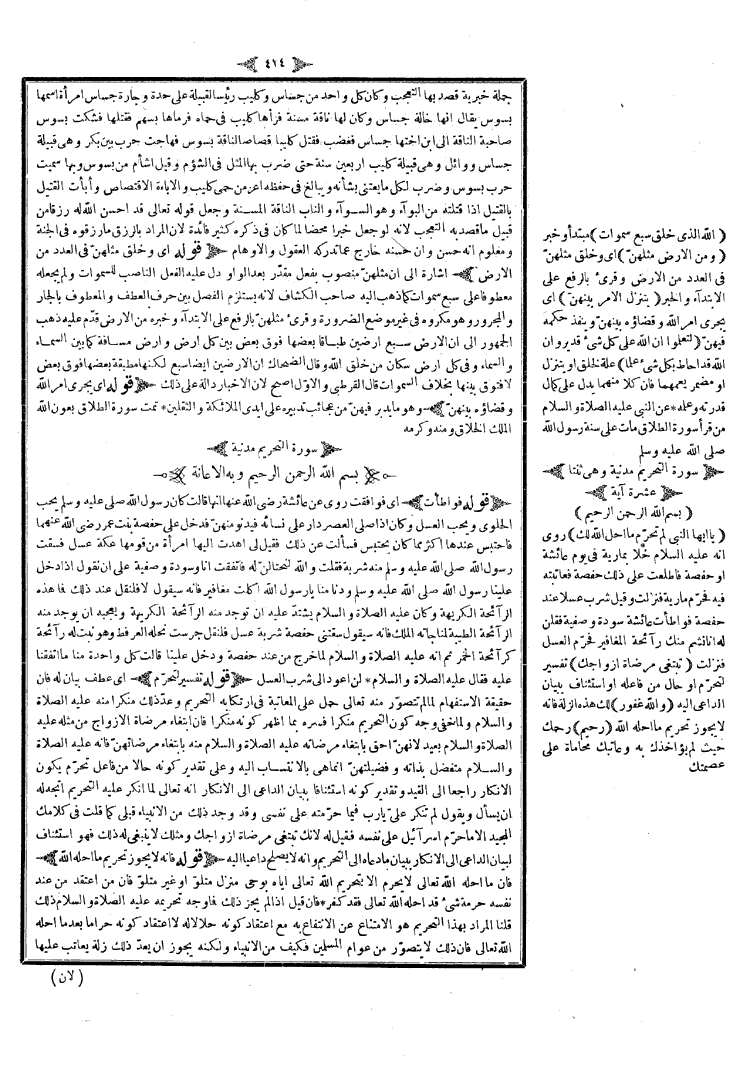 ﴿ ٤١٤ ﴾
جملة خبرية قصد بها التعجب وكان كل واحد من جساس وكليب رئيسا لقبيلة على حدة وجارة جساس امرأة اسمها
بسوس يقال انها خالة جساس وكان لها ناقة مسنة فرآها كليب فى حماه فرماها بسهم فقتلها فشكت بسوس
صاحبة الناقة الى ابن اختها جساس فغضب فقتل كليبا قصاصا لناقة بسوس فهاجت حرب بين بكر وهى قبيلة
جساس ووائل وهى قبيلة كليب اربعين سنة حتى ضرب بها المثل فى الشؤم وقيل اشأم من بسوس وبها سميت
حرب بسوس وضرب لكل ما يعتنى بشأنه ويبالغ فى حفظه اعز من حمى كليب والاباءة الاقتصاص وأبأت القتيل
بالقتيل اذا قتلته من البوآء وهو السوآء والناب الناقة المسنة وجعل قوله تعالى قد احسن الله له رزقا من
قبيل ما قصد به التعجب لانه لو جعل خبرا محضا لما كان فى ذكره كثير فائدة لان المراد بالرزق ما رزقوه فى الجنة
ومعلوم انه حسن وان حسنه خارج عما تدركه العقول والاوهام ﴿ قوله اى وخلق مثلهنّ فى العدد من
الارض ﴾ اشارة الى ان مثلهنّ منصوب بفعل مقدّر بعد الواو دل عليه الفعل الناصب للسموات ولم يجعله
معطوفا على سبع سموات كما ذهب اليه صاحب الكشاف لانه يستلزم الفصل بين حرف العطف والمعطوف بالجار
والمجرور وهو مكروه فى غير موضع الضرورة وقرئ مثلهنّ بالرفع على الابتدآء وخبره من الارض قدّم عليه ذهب
الجمهور الى ان الارض سبع ارضين طباقا بعضها فوق بعض بين كل ارض وارض مسافة كما بين السماء
والسماء وفى كل ارض سكان من خلق الله وقال الضحاك ان الارضين ايضا سبع لكنها مطبقة بعضها فوق بعض
لا فتوق بينها بخلاف السموات قال القرطبى والاوّل اصح لان الاخبار دالة على ذلك ﴿ قوله اى يجرى امر الله
وقضاؤه بينهنّ ﴾ وهو ما يدبر فيهنّ من عجائب تدبيره على ايدى الملائكة والثقلين * تمت سورة الطلاق بعون الله
الملك الخلاق ومنه وكرمه
﴿ سورة التحريم مدنية ﴾
﴿ بسم الله الرحمن الرحيم وبه الاعانة ﴾
﴿ قوله فواطأت ﴾ اى فوافقت روى عن عائشة رضى الله عنها انها قالت كان رسول الله صلى عليه وسلم يحب
الحلوى ويحب العسل وكان اذا صلى العصر دار على نسائه فيدنو منهنّ فدخل على حفصة بنت عمر رضى الله عنهما
فاحتبس عندها اكثر مما كان يحتبس فسألت عن ذلك فقيل لى اهدت اليها امرأة من قومها عكة عسل فسقت
رسول الله صلى الله عليه وسلم منه شربة فقلت والله لنحتالنّ له فاتفقت انا وسودة وصفية على ان نقول اذا دخل
علينا رسول الله صلى الله عليه وسلم ودنا منا يا رسول الله اكلت مغافير فانه سيقول لا فلنقل عند ذلك فما هذه
الرآئحة الكريهة وكان عليه الصلاة والسلام يشتدّ عليه ان توجد منه الرآئحة الكريهة ويعجبه ان يوجد منه
الرآئحة الطيبة لمناجاته الملك فانه سيقول سقتنى حفصة شربة عسل فلنقل جرست نحله العرفط وهو نبت له رآئحة
كرآئحة الخمر ثم انه عليه الصلاة والسلام لما خرج من عند حفصة ودخل علينا قالت كل واحدة منا ما اتفقنا
عليه فقال عليه الصلاة والسلام * لن اعود الى شرب العسل ﴿ قوله تفسير لتحرّم ﴾ اى عطف بيان له فان
حقيقة الاستفهام لما لم تتصوّر منه تعالى حمل على المعاتبة فى ارتكابه التحريم وعدّ ذلك منكرا منه عليه الصلاة
والسلام ولما خفى وجه كون التحريم منكرا فسره بما اظهر كونه منكرا فان ابتغاء مرضاة الازواج من مثله عليه
الصلاة والسلام بعيد لانهنّ احق بابتغاء مرضاته عليه الصلاة والسلام منه بابتغاء مرضاتهنّ فانه عليه الصلاة
والسلام متفضل بذاته وفضيلتهنّ انما هى بالانتساب اليه وعلى تقدير كونه حالا من فاعل تحرّم يكون
الانكار راجعا الى القيد وتقدير كونه استئنافا بيان الداعى الى الانكار انه تعالى لما انكر عليه التحريم اتجه له
ان يسأل ويقول لم تنكر علىّ يا رب فيما حرّمته على نفسى وقد وجد ذلك من الانبياء قبلى كما قلت فى كلامك
المجيد الا ما حرّم اسرآئيل على نفسه فقيل له لانك تبتغى مرضاة ازواجك ومثلك لا ينبغى له ذلك فهو استئناف
لبيان الداعى الى الانكار ببيان ما دعاه الى التحريم وانه لا يصلح داعيا اليه ﴿ قوله فانه لا يجوز تحريم ما احله الله ﴾
فان ما احله الله تعالى لا يحرم الا بتحريم الله تعالى اياه بوحى منزل متلوّ او غير متلوّ فان من اعتقد من عند
نفسه حرمة شئ قد احله الله تعالى فقد كفر * فان قيل اذا لم يجز ذلك فما وجه تحريمه عليه الصلاة والسلام ذلك
قلنا المراد بهذا التحريم هو الامتناع عن الانتفاع به مع اعتقاد كونه حلالا له لا اعتقاد كونه حراما بعد ما احله
الله تعالى فان ذلك لا يتصوّر من عوام المسلمين فكيف من الانبياء ولكنه يجوز ان يعدّ ذلك زلة يعاتب عليها
( لان )
( الله الذى خلق سبع سموات ) مبتدأ وخبر
( ومن الارض مثلهنّ ) اى وخلق مثلهنّ
فى العدد من الارض وقرئ بالرفع على
الابتدآء والخبر ( يتنزل الامر بينهنّ ) اى
يجرى امر الله وقضاؤه بينهنّ وينفذ حكمه
فيهنّ ( لتعلموا ان الله على كل شئ قدير وان
الله قد احاط بكل شئ علما ) علة لخلق او يتنزل
او مضمر يعمهما فان كلا منهما يدل على كمال
قدرته وعلمه * عن النبى عليه الصلاة والسلام
من قرأ سورة الطلاق مات على سنة رسول الله
صلى الله عليه وسلم
﴿ سورة التحريم مدنية وهى ثنتا ﴾
﴿ عشرة آية ﴾
( بسم الله الرحمن الرحيم )
( يا ايها النبى لم تحرّم ما احل الله لك ) روى
انه عليه السلام خلا بمارية فى يوم عائشة
او حفصة فاطلعت على ذلك حفصة فعاتبته
فيه فحرّم مارية فنزلت وقيل شرب عسلا عند
حفصة فواطأت عائشة سودة وصفية فقلن
له انا نشم منك رآئحة المغافير فحرّم العسل
فنزلت ( تبتغى مرضاة ازواجك ) تفسير
لتحرّم او حال من فاعله او استئناف ببيان
الداعى اليه ( والله غفور ) لك هذه الزلة فانه
لا يجوز تحريم ما احله الله ( رحيم ) رحمك
حيث لم يؤاخذك به وعاتبك محاماة على
عصمتك